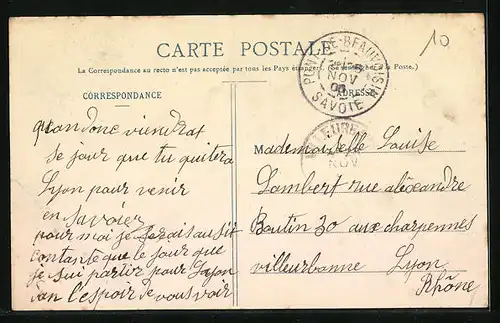 CARTE POSTALE
La Correspondance au recto n'est pas acceptée par tous les Pays étrangers. (Se renseigner à la Poste.)
10
PONT-DE-BEAUVOISIN
NOV
SAVOIE
CORRESPONDANCE
ADRESSE
quandonc viendrat
se jour que tu quitera
Lyon pour venir
en Savoier
pour moi je serais ausit
contante que le jour que
je sui partir pour Layon
dan l'espoir de vous voir
NOV
Mademoiselle Louise
Lambert rue aléxandre
Boutin 30 aux charpennes
villeurbanne Lyon
Rhône